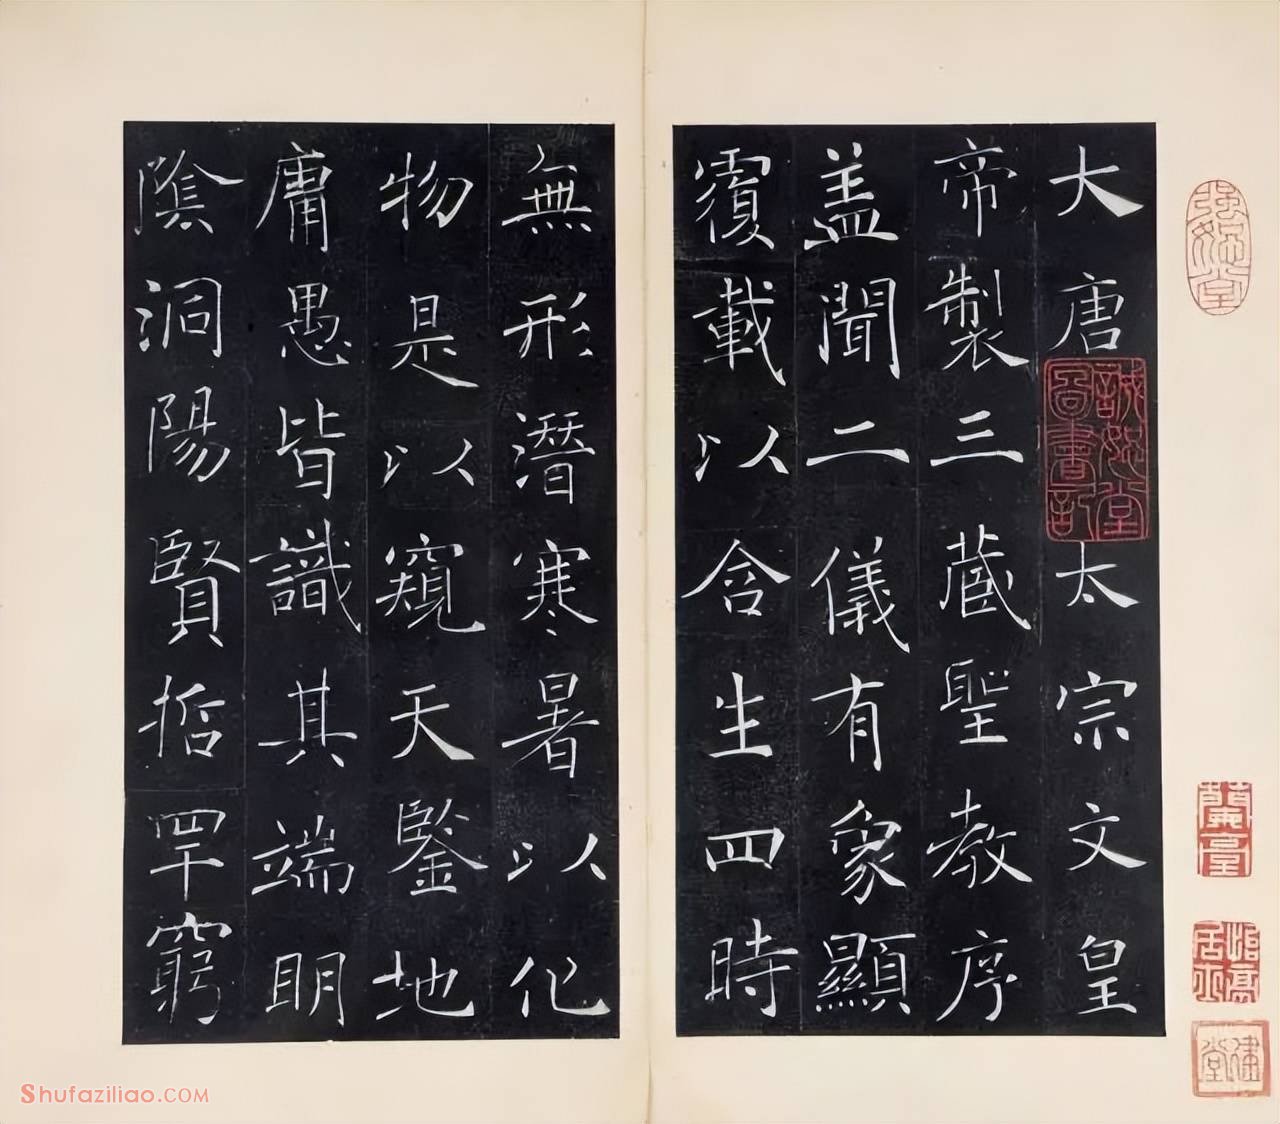 大唐太宗文皇
帝製三蔵聖教序
盖聞二儀有象顯
覆載以含生四時
無形潛寒暑以化
物是以窺天鑒地
庸愚皆識其端明
陰洞陽賢哲罕窮
Shufaziliao.COM